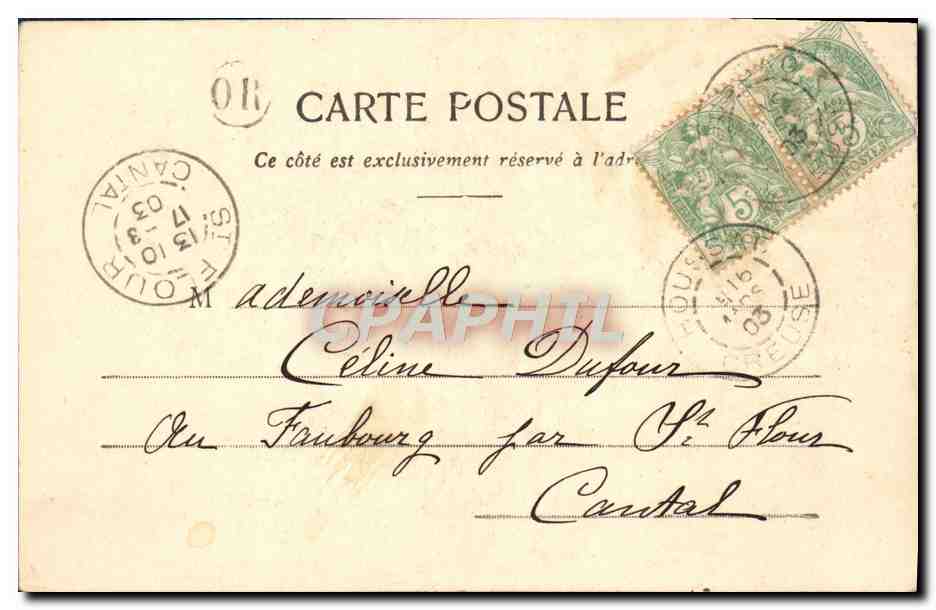 OR
CARTE POSTALE
Ce côté est exclusivement réservé à l'adre
ST FLOUR
13 10
17 -3
03
CANTAL
5c
5c
POSTES
16
MARS
03
CREUSE
CPAPHIL
Mademoiselle
Céline Dufour
Au Faubourg par St Flour
Cantal